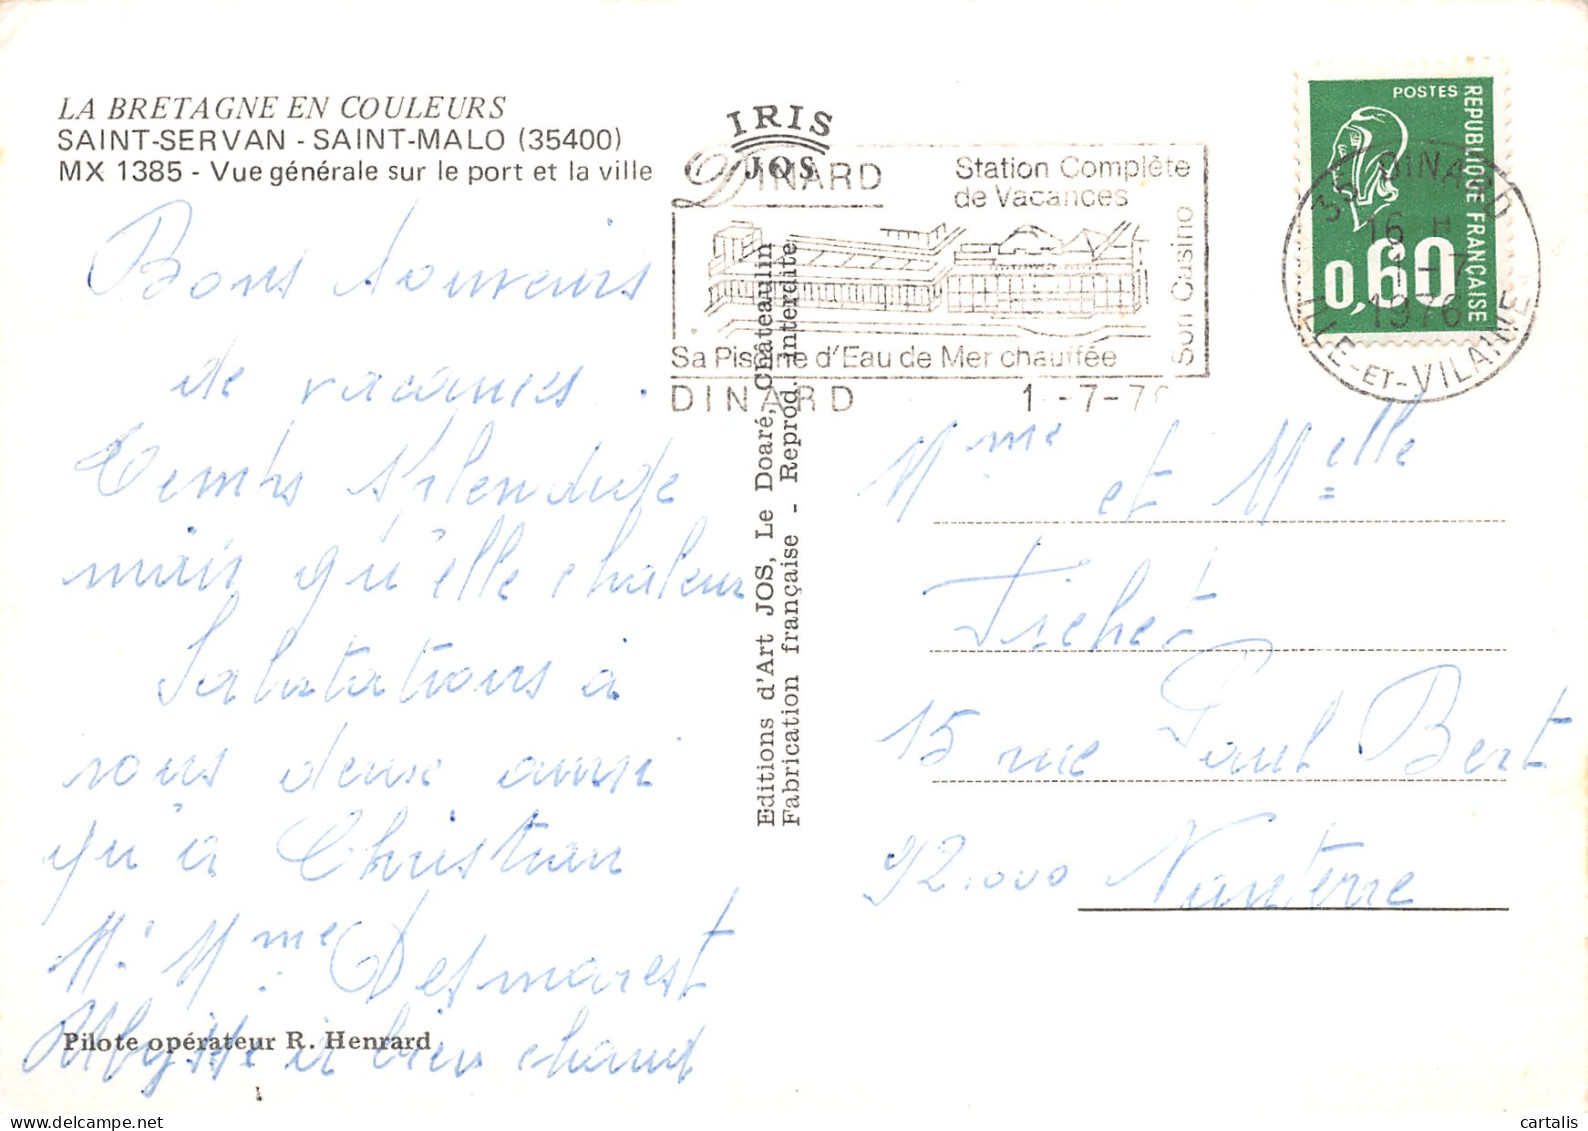 LA BRETAGNE EN COULEURS
SAINT-SERVAN - SAINT-MALO (35400)
MX 1385 - Vue générale sur le port et la ville
Bons souvenirs
de vacances.
Temps splendide
mais qu'elle chaleur
Salutations à
vous deux ainsi
qu'à Christian
M. Mme Desmarest
bien chaud
Pilote opérateur R. Henrard
IRIS
JOS
Editions d'Art JOS, Le Doaré, Châteaulin
Fabrication française - Reprod. interdite
DINARD
Station Complète
de Vacances
Son Casino
Sa Piscine d'Eau de Mer chauffée
DINARD 1-7-76
POSTES
REPUBLIQUE FRANÇAISE
0,60
35 DINARD
16 H
1-7
1976
ILLE-ET-VILAINE
Mme et Melle
Fichet
15 rue Paul Bert
92.000 Nanterre
cartalis
www.delcampe.net